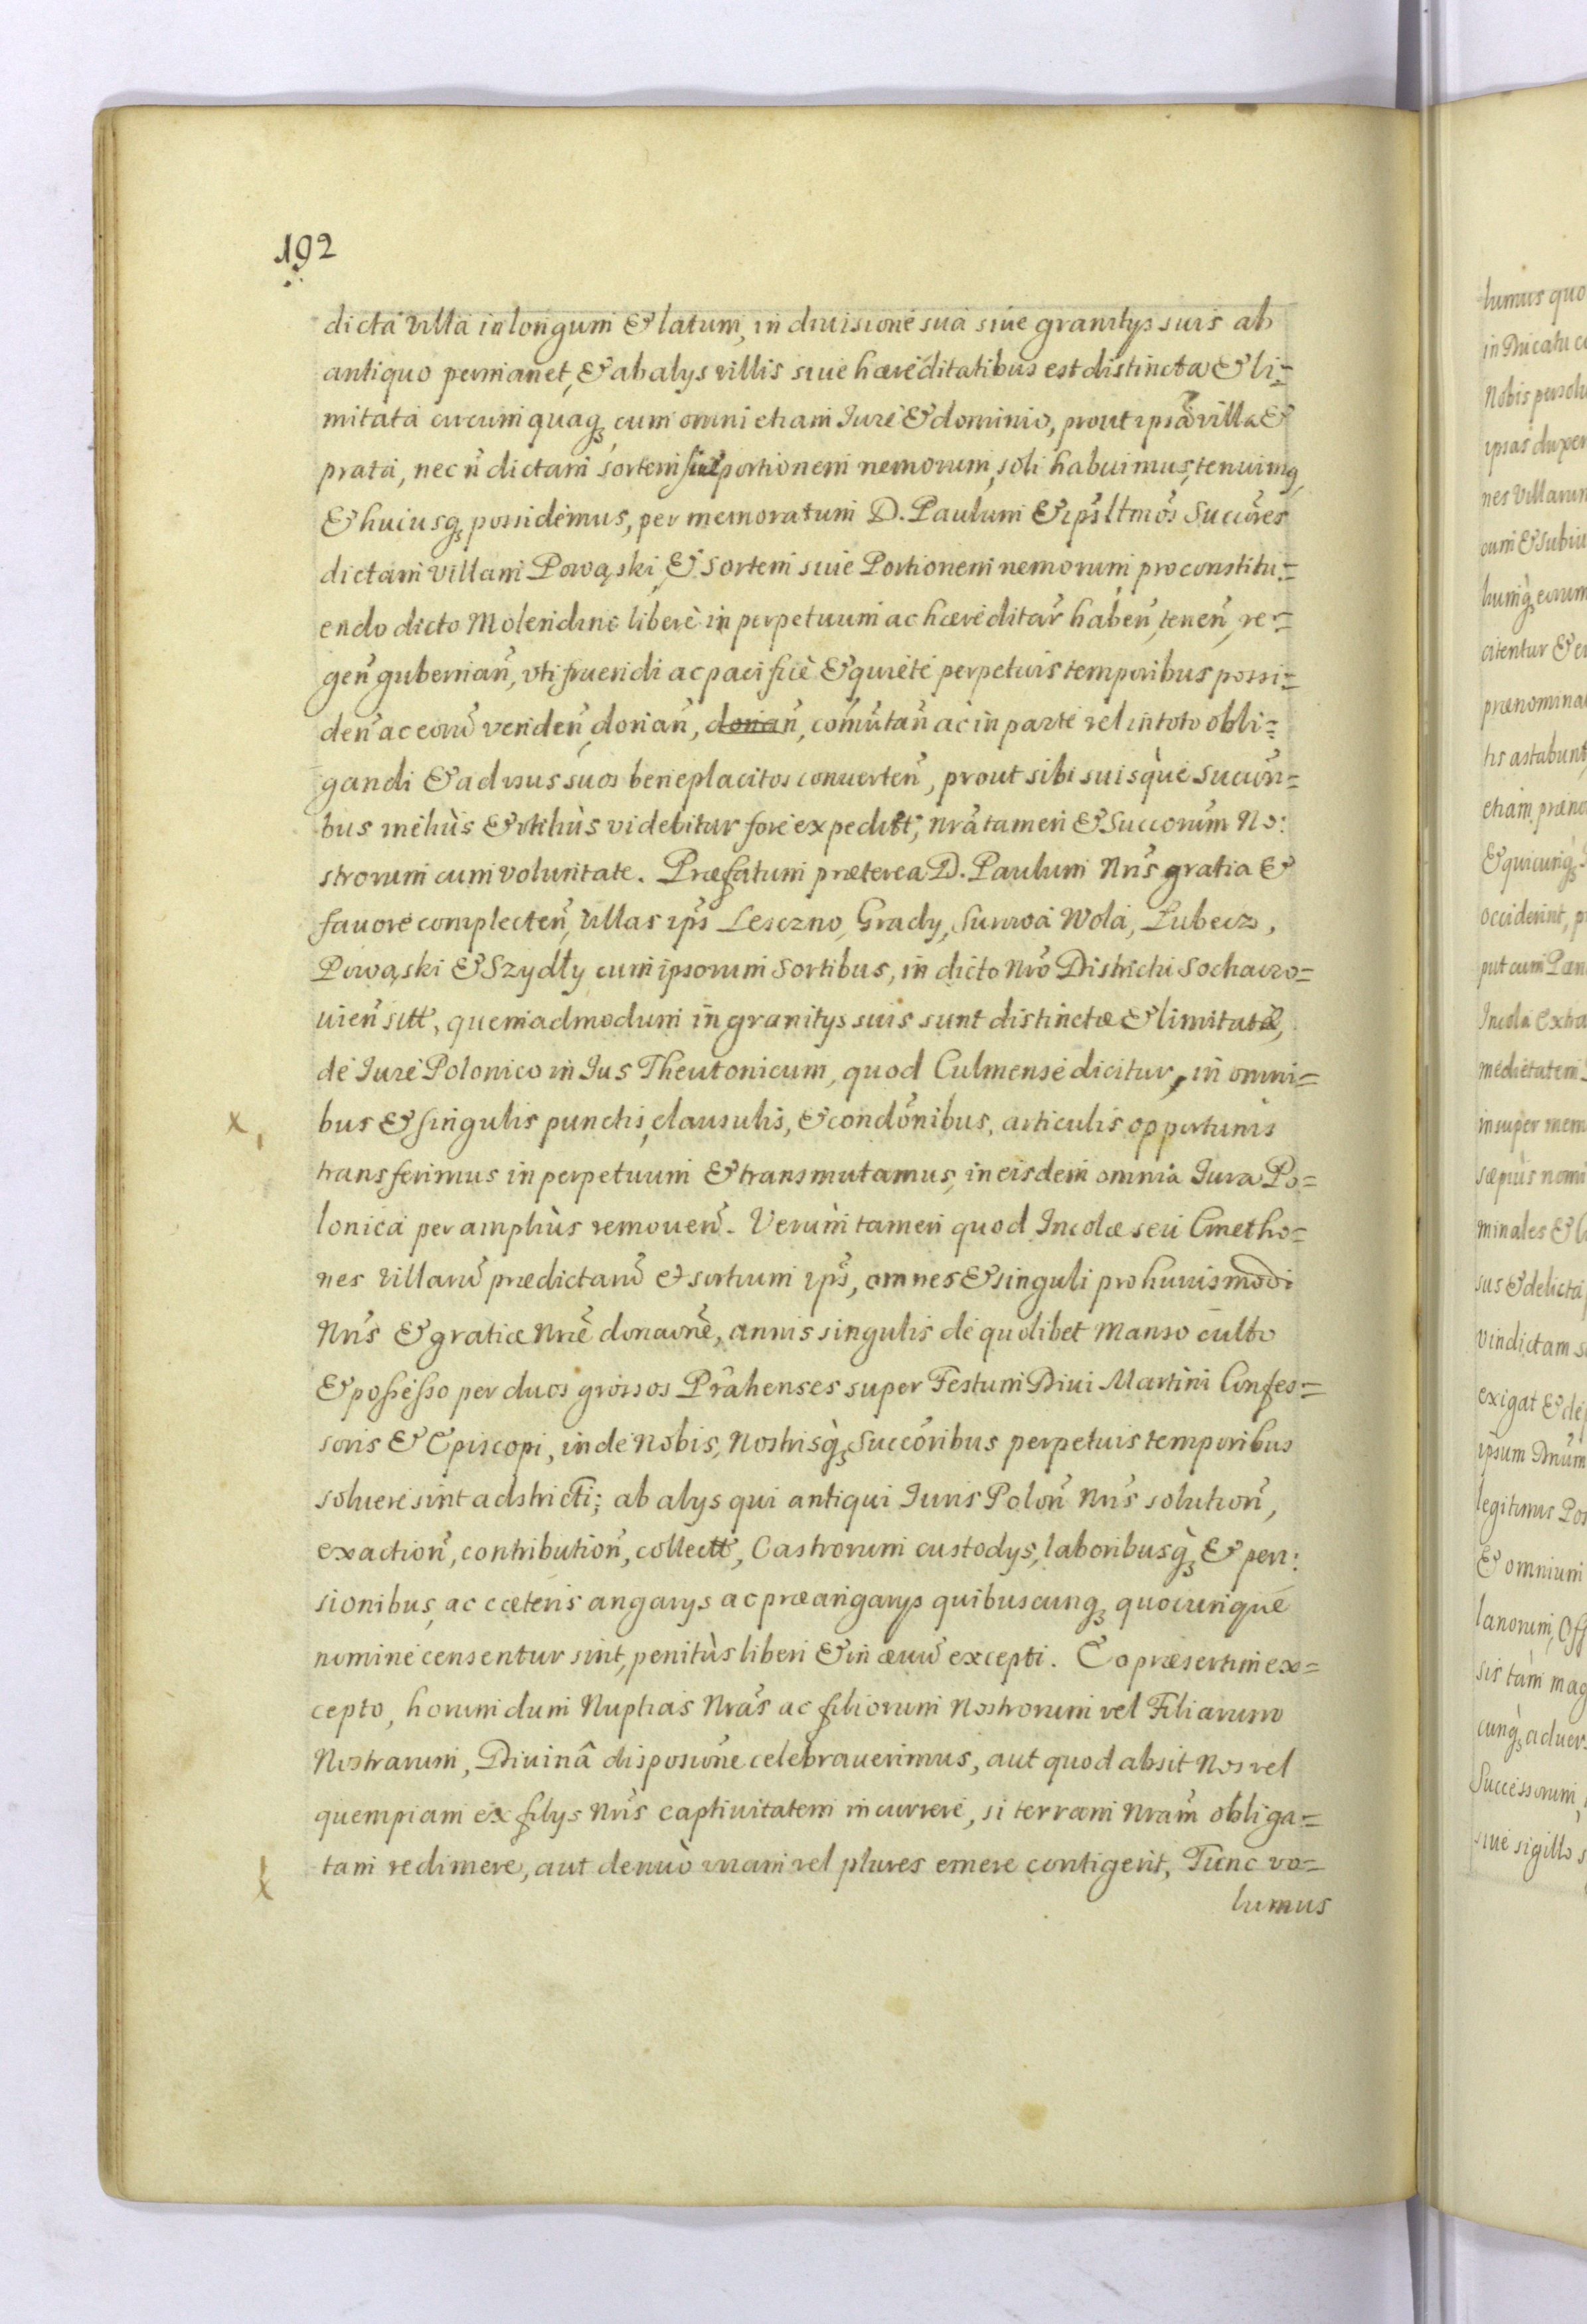 192
dicta villa in longum & latum, in diuisione sua siue granitys suis ab
antiquo permanet, & ab alys villis siue hæreditatibus est distincta & li=
mitata circumquaq, cum omni etiam Jure & dominio, prout ipsa villa &
prata, nec n̄ dictam sortem siue portionem nemorum, soli habuimus, tenuimq,
& huiusq, possidemus, per memoratum D. Paulum & ip̄s ltmōs Succr̄es
dictam villam Powąski, & sortem siue Portionem nemorum pro constitu=
endo dicto Molendino liberè in perpetuum ac hæreditar̄ haben̄, tenen̄, re=
gen̄ gubernan̄, vti fruendi ac pacificè & quiete perpetuis temporibus possi=
den̄ ac eoru̅ venden̄, donan̄, donan̄, com̄utan̄ ac in parte vel in toto obli=
gandi & ad usus suos beneplacitos conuerten̄, prout sibi suisquè Succūr=
bus meliùs & vtiliùs videbitur fore expedītt; nrā tamen & Succorūm No:
strorum cum voluntate. Præfatum præterea D. Paulum Nrīs gratia &
fauore complecten̄, villas ip̄s Leszno, Grady, Surowa Wola, Lubecz,
Powąski & Szydły cum ipsorum Sortibus, in dicto Nrō Districtu Sochaczo=
uien̄ sitt, quemadmodum in granitys suis sunt distinctæ & limitatæ,
de Jure Polonico in Jus Theutonicum, quod Culmense dicitur, in omni=
bus & singulis punctis, clausulis, & condōnibus, articulis opportunis
x,
transferimus in perpetuum & transmutamus, in eisdem omnia Jura Po=
lonica per ampliùs remouen̄. Verùm tamen quod Incolæ seu Cmetho=
nes villaru̅ prædictaru̅ et sortium ip̄s, omnes & singuli pro huiusmodi
Nrīs & gratiæ Nrē donaōnē, annis singulis de quolibet Manso culto
& possesso per duos grossos Prāhenses super Festum Diui Martini Confes=
soris & Episcopi, inde Nobis, Nostrisq, Succōribus perpetuis temporibus
soluere sint adstricti; ab alys qui antiqui Juris Polon̄ Nrīs solution̄,
exaction̄, contribution̄, collectt, Castrorum custodys, laboribusq, & pen:
sionibus, ac cæteris angarys ac præangarys quibuscunq, quocunque
nomine censentur sint, penitùs liberi & in æuu̅ excepti. Eo præsertim ex=
cepto, horum dum Nuptias Nrās ac filiorum Nostrorum vel Filiarum
Nostrarum, Diuinâ disposiōne celebrauerimus, aut quod absit Nos vel
quempiam ex filys Nrīs captiuitatem incurrere, si terram Nrām obliga=
tam redimere, aut denuò unam vel plures emere contigerit, Tunc vo=
lumus